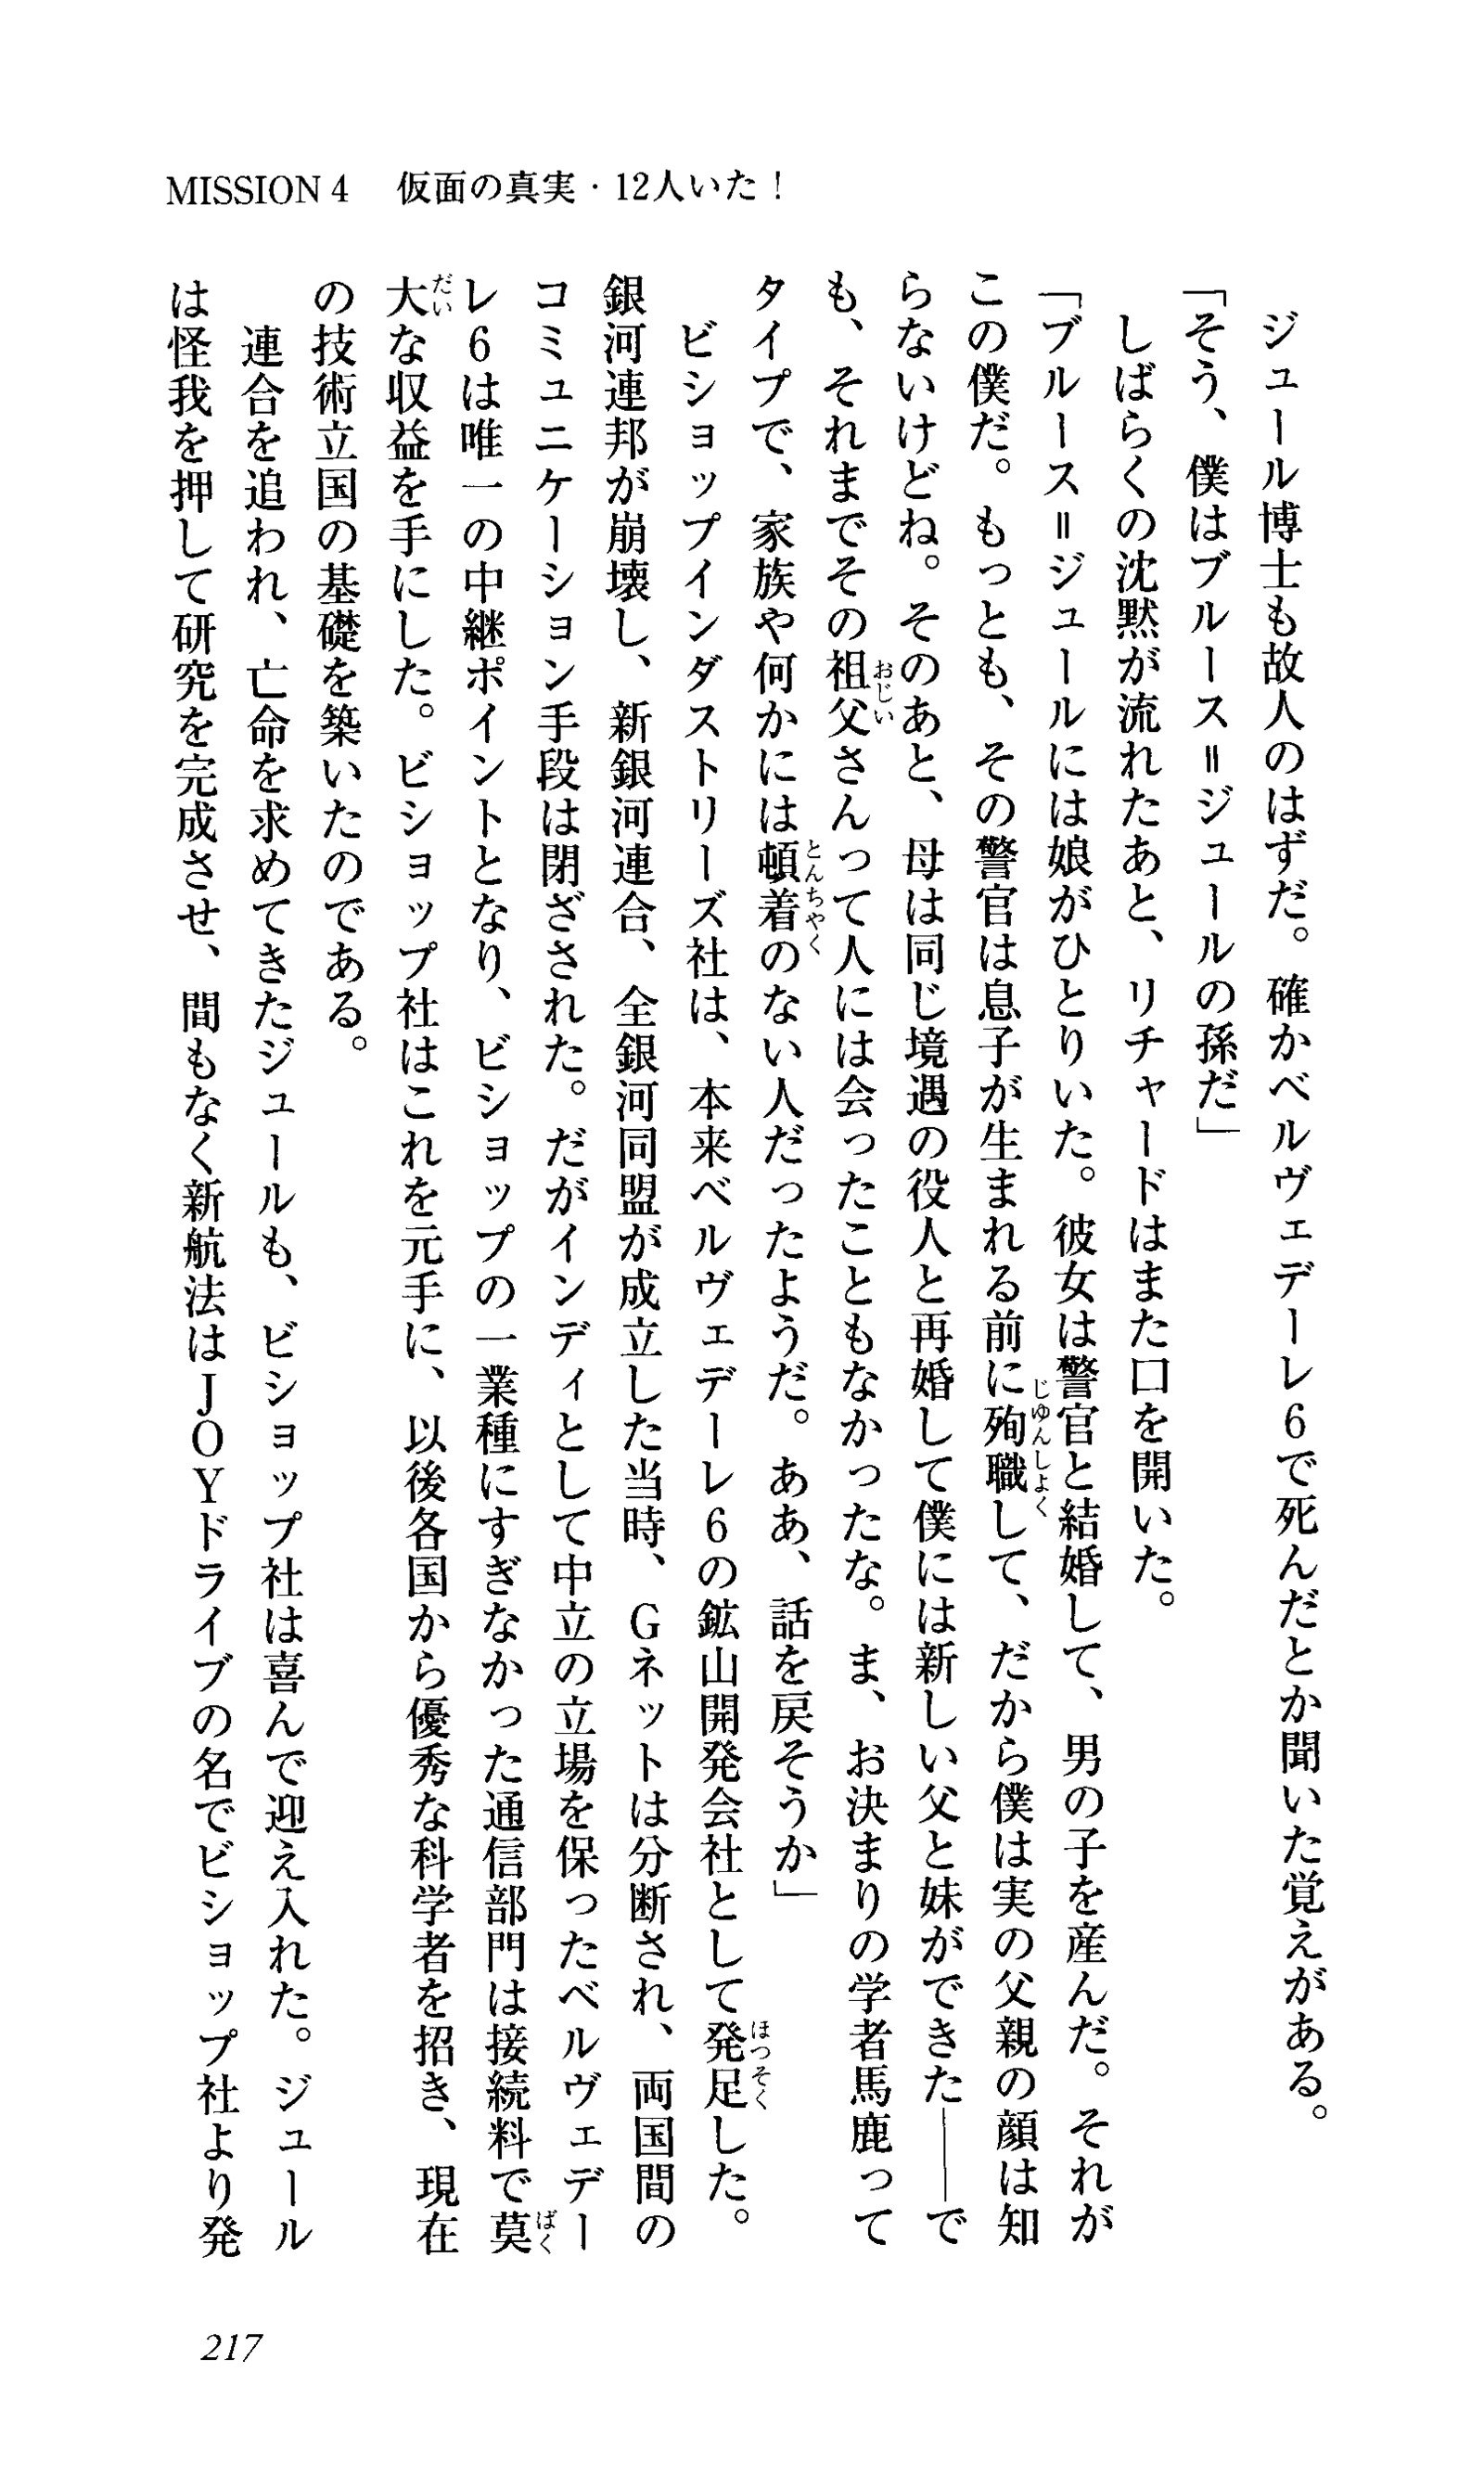 MISSION 4 仮面の真実・12人いた！
ジュール博士も故人のはずだ。確かベルヴェデーレ６で死んだとか聞いた覚えがある。
「そう、僕はブルース＝ジュールの孫だ」
しばらくの沈黙が流れたあと、リチャードはまた口を開いた。
「ブルース＝ジュールには娘がひとりいた。彼女は警官と結婚して、男の子を産んだ。それが
この僕だ。もっとも、その警官は息子が生まれる前に殉職して、だから僕は実の父親の顔は知
らないけどね。そのあと、母は同じ境遇の役人と再婚して僕には新しい父と妹ができた――で
も、それまでその祖父さんって人には会ったこともなかったな。ま、お決まりの学者馬鹿って
タイプで、家族や何かには頓着のない人だったようだ。ああ、話を戻そうか」
ビショップインダストリーズ社は、本来ベルヴェデーレ６の鉱山開発会社として発足した。
銀河連邦が崩壊し、新銀河連合、全銀河同盟が成立した当時、Ｇネットは分断され、両国間の
コミュニケーション手段は閉ざされた。だがインディとして中立の立場を保ったベルヴェデー
レ６は唯一の中継ポイントとなり、ビショップの一業種にすぎなかった通信部門は接続料で莫
大な収益を手にした。ビショップ社はこれを元手に、以後各国から優秀な科学者を招き、現在
の技術立国の基礎を築いたのである。
連合を追われ、亡命を求めてきたジュールも、ビショップ社は喜んで迎え入れた。ジュール
は怪我を押して研究を完成させ、間もなく新航法はＪＯＹドライブの名でビショップ社より発
217